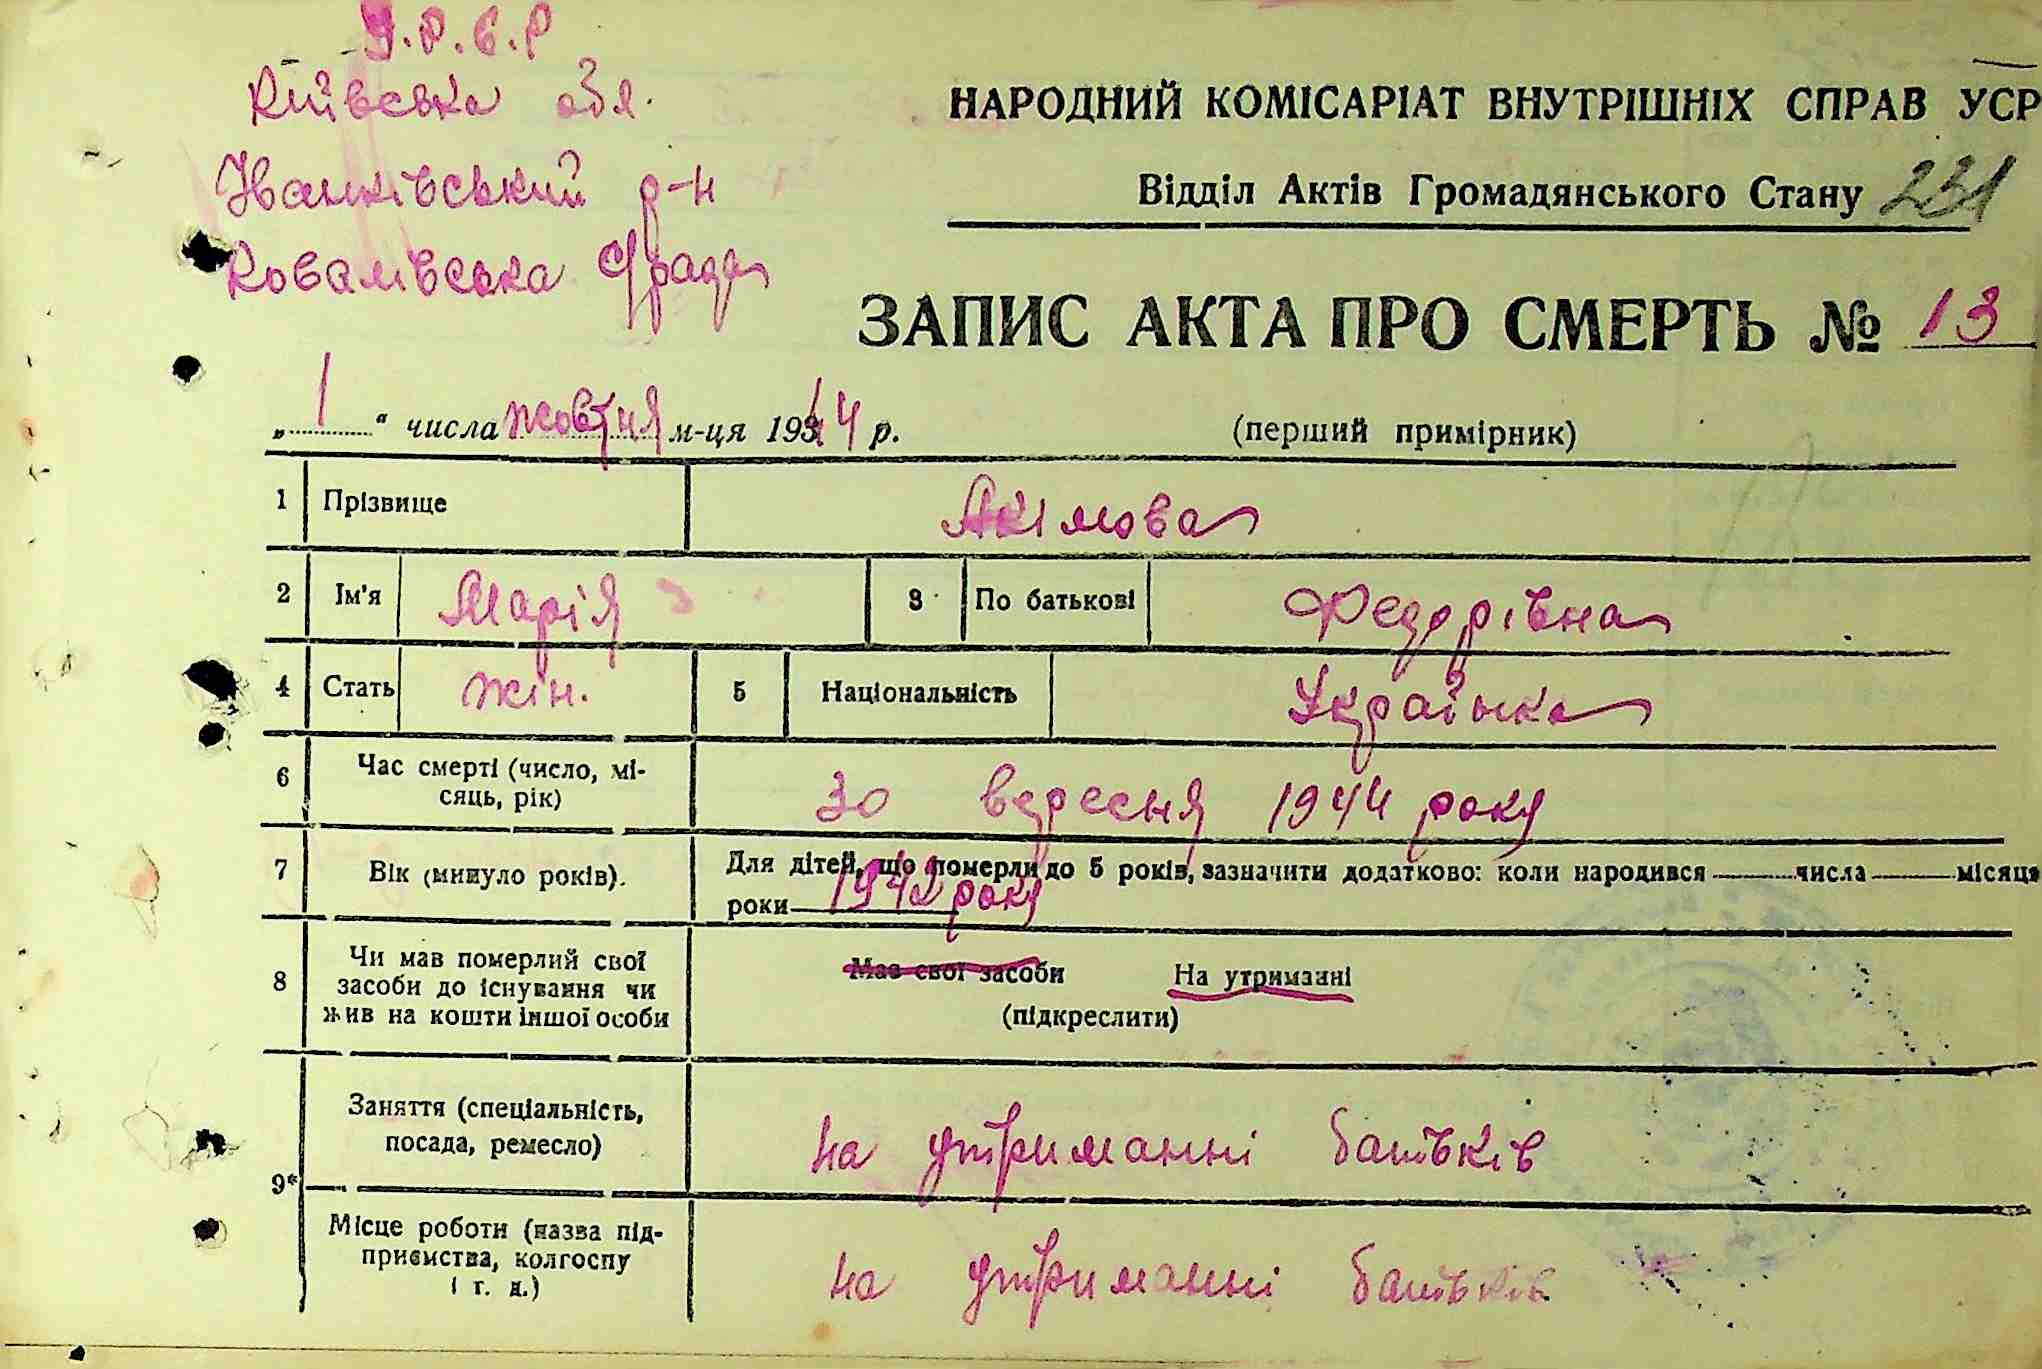 У.Р.С.Р
Київська обл.
Іванківський р-н
Ковалівська с/рада
НАРОДНИЙ КОМІСАРІАТ ВНУТРІШНІХ СПРАВ УСР
Відділ Актів Громадянського Стану 231
ЗАПИС АКТА ПРО СМЕРТЬ № 13
„1“ числа жовтня м-ця 1944 р.
(перший примірник)
1 Прізвище Акімова
2 Ім'я Марія 3 По батькові Федорівна
4 Стать жін. 5 Національність Українка
6 Час смерті (число, мі-
сяць, рік) 30 вересня 1944 року
7 Вік (минуло років). Для дітей, що померли до 5 років, зазначити додатково: коли народився числа місяця
роки 1942 року
8 Чи мав померлий свої
засоби до існування чи
жив на кошти іншої особи
Мав свої засоби На утриманні
(підкреслити)
9* Заняття (спеціальність,
посада, ремесло) на утриманні батьків
Місце роботи (назва під-
приємства, колгоспу
і т. д.) на утриманні батьків